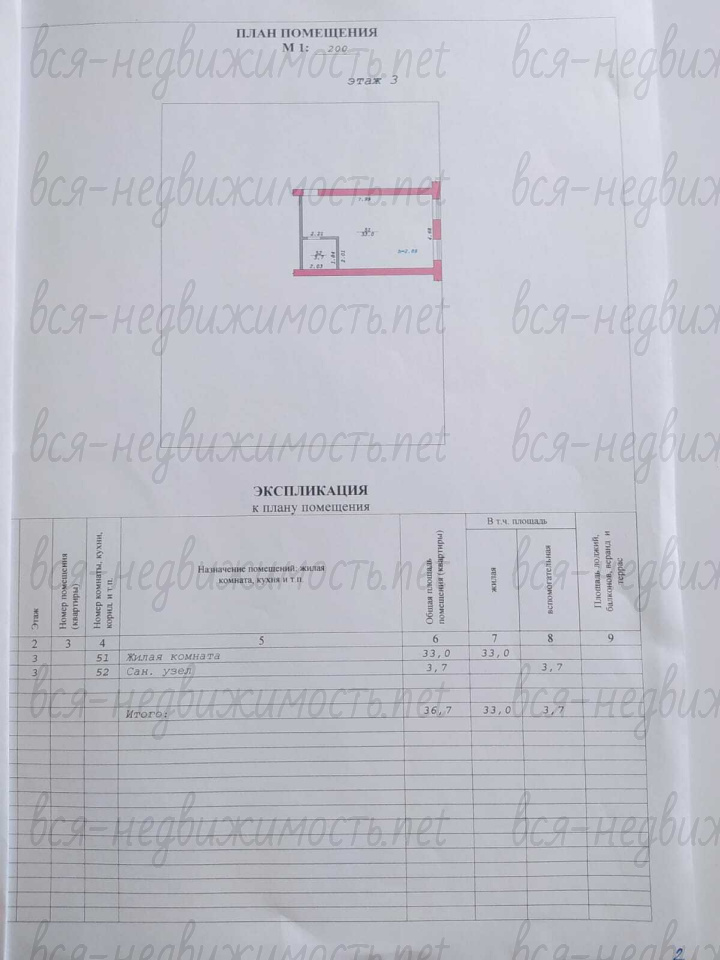 ПЛАН ПОМЕЩЕНИЯ
М 1: 200
этаж 3
7.99
2.21
51
33.0
4.60
h=2.90
52
3.7
1.84
2.01
2.03
ЭКСПЛИКАЦИЯ
к плану помещения
Этаж
Номер помещения (квартиры)
Номер комнаты, кухни, корид. и т.п.
Назначение помещений: жилая комната, кухня и т.п.
Общая площадь помещения (квартиры)
В т.ч. площадь
жилая
вспомогательная
Площадь лоджий, балконов, веранд и террас
2 3 4 5 6 7 8 9
3 51 Жилая комната 33,0 33,0
3 52 Сан. узел 3,7 3,7
Итого: 36,7 33,0 3,7
2
вся-недвижимость.net